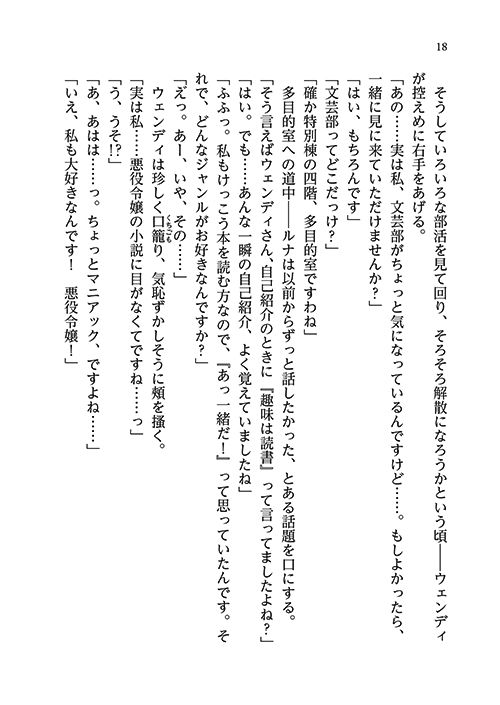 18
　そうしていろいろな部活を見て回り、そろそろ解散になろうかという頃――ウェンディ
が控えめに右手をあげる。
「あの……実は私、文芸部がちょっと気になっているんですけど……。もしよかったら、
一緒に見に来ていただけませんか？」
「はい、もちろんです」
「文芸部ってどこだっけ？」
「確か特別棟の四階、多目的室ですわね」
　多目的室への道中――ルナは以前からずっと話したかった、とある話題を口にする。
「そう言えばウェンディさん、自己紹介のときに『趣味は読書』って言ってましたよね？」
「はい。でも……あんな一瞬の自己紹介、よく覚えていましたね」
「ふふっ。私もけっこう本を読む方なので、『あっ一緒だ！』って思っていたんです。そ
れで、どんなジャンルがお好きなんですか？」
「えっ。あー、いや、その……」
　ウェンディは珍しく口籠り、気恥ずかしそうに頬を掻く。
「実は私……悪役令嬢の小説に目がなくてですね……っ」
「う、うそ!?」
「あ、あはは……っ。ちょっとマニアック、ですよね……」
「いえ、私も大好きなんです！　悪役令嬢！」